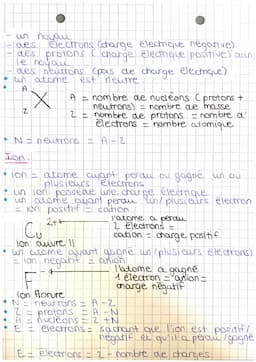 - un noyau
- des électrons (charge électrique négative)
- des protons (charge électrique positive) dans
le noyau
- des neutrons (pas de charge électrique)
• un atome est neutre
A
X
Z
A = nombre de nucléons (protons +
neutrons) = nombre de masse
Z = nombre de protons = nombre d'
électrons = nombre atomique
• N = neutrons = A - Z
Ion.
• ion = atome ayant perdu ou gagné un ou
plusieurs électrons
• un ion possède une charge électrique
• un atome ayant perdu un/plusieurs électron
= ion positif = cation
Cu 2+
l'atome a perdu
2 électrons =
cation = charge positif
ion cuivre II
• un atome ayant gagné un/plusieurs électrons)
= ion négatif = anion
F -
l'atome a gagné
1 électron = anion =
charge négatif
ion fluorure
• N = neutrons = A - Z
• Z = protons = A - N
• A = nucléons = Z + N
• E = électrons = sachant que l'ion est positif/
négatif et qu'il a perdu/gagné
E = électrons = Z - nombre de charges